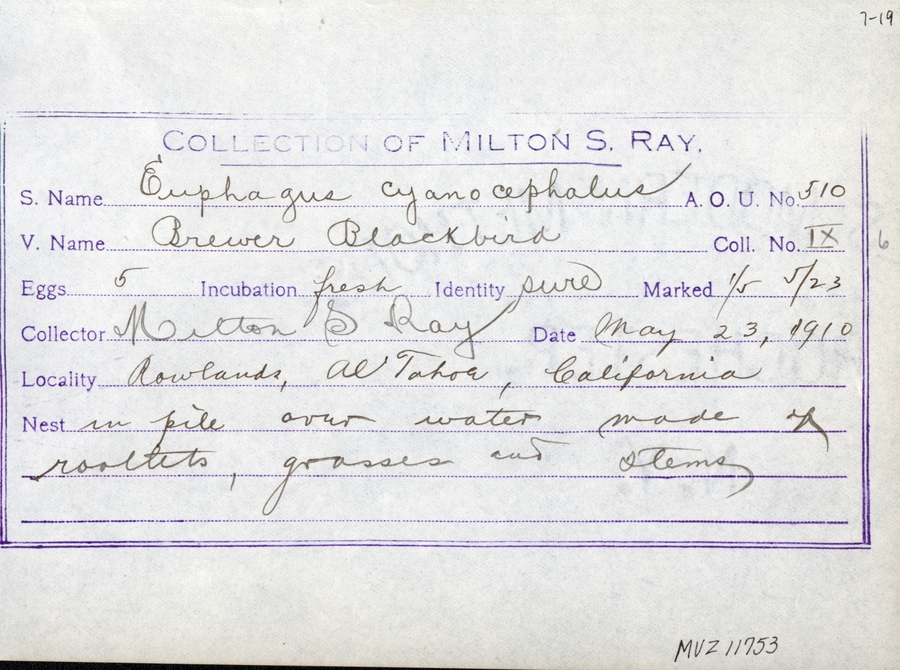 7-19
COLLECTION OF MILTON S. RAY.
S. Name Euphagus cyanocephalus A. O. U. No. 510
V. Name Brewer Blackbird Coll. No. IX
6
Eggs 5 Incubation fresh Identity sure Marked 1/5 5/23
Collector Milton S Ray Date May 23, 1910
Locality Rowlands, Al Tahoe, California
Nest in pile over water made of
rootlets, grasses and stems
MVZ 11753